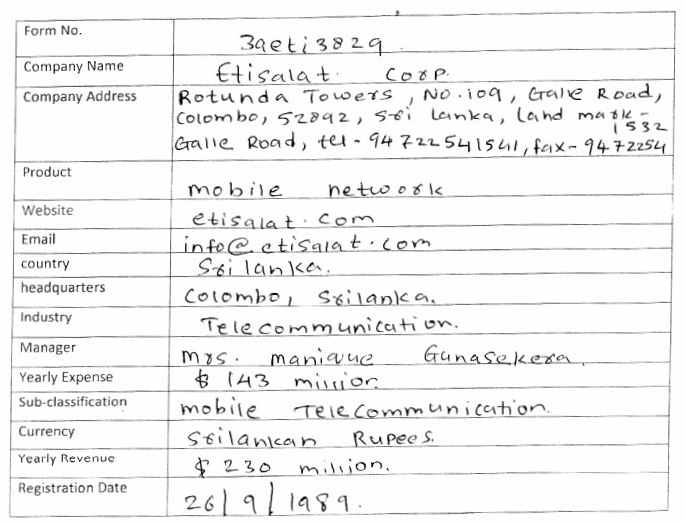 Form No. 3aeti3829.
Company Name Etisalat. Corp.
Company Address Rotunda Towers, No.109, Galle Road,
Colombo, 52892, Sri Lanka, Land mark -
1532
Galle Road, tel - 94722541541, fax - 9472254
Product mobile network
Website etisalat.com
Email info@etisalat.com
country Srilanka.
headquarters Colombo, Srilanka.
Industry Telecommunication.
Manager Mrs. Manique Gunasekera.
Yearly Expense $ 143 million
Sub-classification mobile Telecommunication.
Currency Srilankan Rupees.
Yearly Revenue $ 230 million.
Registration Date 26/9/1989.